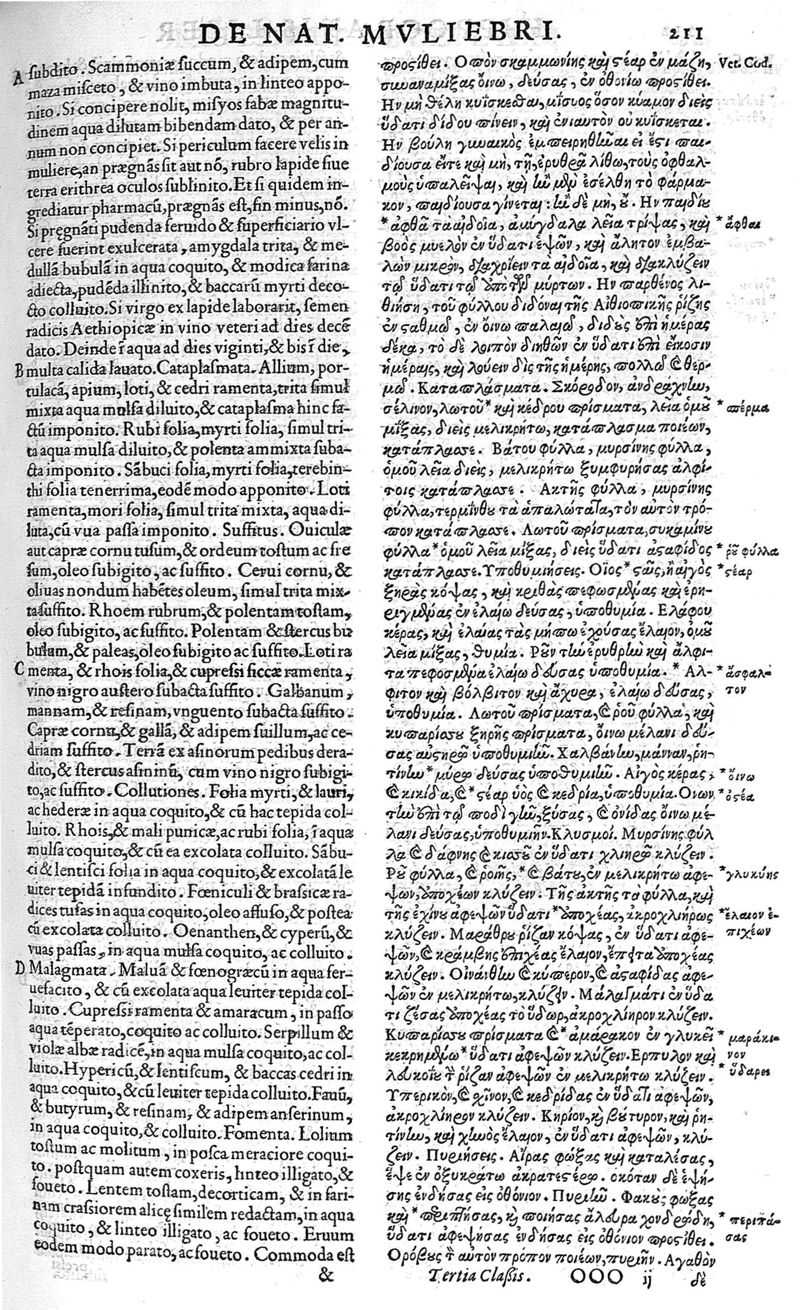 DE NAT. MVLIEBRI. 211
A subdito. Scammoniæ succum, & adipem, cum
maza misceto, & vino imbuta, in linteo appo-
nito. Si concipere nolit, misyos fabæ magnitu-
dinem aqua dilutam bibendam dato, & per an-
num non concipiet. Si periculum facere velis in
muliere, an prægnãs sit aut nõ, rubro lapide siue
terra erithrea oculos sublinito. Et si quidem in-
grediatur pharmacũ, prægnas est, sin minus, nõ.
Si pręgnãti pudenda feruido & superficiario vl-
cere fuerint exulcerata, amygdala trita, & me-
dullã bubulã in aqua coquito, & modica farina
adiecta, pudẽda illinito, & baccarũ myrti deco-
cto colluito. Si virgo ex lapide laborarit, semen
radicis Aethiopicæ in vino veteri ad dies decẽ
dato. Deinde ĩ aqua ad dies viginti, & bis ĩ die,
B multa calida lauato. Cataplasmata. Allium, por-
tulacã, apium, loti, & cedri ramenta, trita simul
mixta aqua mulsa diluito, & cataplasma hinc fa-
ctũ imponito. Rubi folia, myrti folia, simul tri-
ta aqua mulsa diluito, & polenta ammixta suba-
cta imponito. Sãbuci folia, myrti folia, terebin-
thi folia tenerrima, eodẽ modo apponito. Loti
ramenta, mori folia, simul trita mixta, aqua di-
luta, cũ vua passa imponito. Suffitus. Ouiculæ
aut capræ cornu tusum, & ordeum tostum ac fre
sum, oleo subigito, ac suffito. Cerui cornu, &
oliuas nondum habẽtes oleum, simul trita mix-
ta suffito. Rhoem rubrum, & polentam tostam,
oleo subigito, ac suffito. Polentam & stercus bu
bulum, & paleas, oleo subigito ac suffito. Loti ra
C menta, & rhois folia, & cupressi siccæ ramenta,
vino nigro austero subacta suffito. Galbanum,
mannam, & resinam, vnguento subacta suffito.
Capræ cornu, & gallã, & adipem suillum, ac ce-
driam suffito. Terrã ex asinorum pedibus dera-
dito, & stercus asininũ, cum vino nigro subigi-
to, ac suffito. Collutiones. Folia myrti, & lauri,
ac hederæ in aqua coquito, & cũ hac tepida col-
luito. Rhois, & mali punicæ, ac rubi folia, ĩ aqua
mulsa coquito, & cũ ea excolata colluito. Sãbu-
ci & lentisci folia in aqua coquito, & excolatã le
uiter tepidã infundito. Fœniculi & brassicæ ra-
dices tusas in aqua coquito, oleo affuso, & postea
cũ excolata colluito. Oenanthen, & cyperũ, &
vuas passas, in aqua mulsa coquito, ac colluito.
D Malagmata. Maluã & fœnogræcũ in aqua fer-
uefacito, & cũ excolata aqua leuiter tepida col-
luito. Cupressi ramenta & amaracum, in passo
aqua tẽperato, coquito ac colluito. Serpillum &
violæ albæ radicẽ, in aqua mulsa coquito, ac col-
luito. Hypericũ, & lentiscum, & baccas cedri in
aqua coquito, & cũ leuiter tepida colluito. Fauũ,
& butyrum, & resinam, & adipem anserinum,
in aqua coquito, & colluito. Fomenta. Lolium
tostum ac molitum, in posca meraciore coqui-
to. postquam autem coxeris, linteo illigato, &
foueto. Lentem tostam, decorticam, & in fari-
nam crassiorem alicę similem redactam, in aqua
coquito, & linteo illigato, ac foueto. Eruum
eodem modo parato, ac foueto. Commoda est
&
προςίθει. Οπὸν σκαμμωνίης καὶ στέαρ ἐν μάζῃ, Vet. Cod.
συναναμίξας οἴνῳ, δεύσας, ἐν ὀθονίῳ προςίθει.
Ην μὴ θέλῃ κυΐσκεσθαι, μίσυος ὅσον κύαμον διεὶς
ὕδατι δίδου πίνειν, καὶ ἐνιαυτὸν οὐ κυΐσκεται.
Ην βούλῃ γυναικὸς ἐμπειρηθῆναι εἰ ἔτι παι-
δίουσα εἴτε καὶ μὴ, τῇ, ἐρυθρᾷ λίθῳ, τοὺς ὀφθαλ-
μοὺς ὑπαλεῖψαι, καὶ ἢν μὲν ἐσέλθῃ τὸ φάρμα-
κον, παιδίουσα γίνεται· ἢν δὲ μὴ, οὔ. Ην παιδίου
* ἀφθᾷ τὰ αἰδοῖα, ἀμύγδαλα λεῖα τρίψας, καὶ * ἄφθαι
βοὸς μυελὸν ἐν ὕδατι ἑψῶν, καὶ ἄλητον ἐμβα-
λὼν μικρὸν, διαχρίειν τὰ αἰδοῖα, καὶ διακλύζειν
τῷ ὕδατι τῷ ἀπὸ τῶν μύρτων. Ην παρθένος λι-
θιήσῃ, τοῦ φύλλου διδόναι τῆς Αἰθιοπικῆς ῥίζης
ἐν σταθμῷ, ἐν οἴνῳ παλαιῷ, διδοὺς ἐπὶ ἡμέρας
δέκα, τὸ δὲ λοιπὸν διηθῶν ἐν ὕδατι ἐπὶ εἴκοσιν
ἡμέρας, καὶ λούειν δὶς τῆς ἡμέρης, πολλῷ καὶ θερ-
μῷ. Καταπλάσματα. Σκόροδον, ἀνδράχνην,
σέλινον, λωτοῦ * καὶ κέδρου πρίσματα, λεῖα ὁμοῦ * σπέρμα
μίξας, διεὶς μελικρήτῳ, κατάπλασμα ποιέων,
κατάπλασσε. Βάτου φύλλα, μυρσίνης φύλλα,
ὁμοῦ λεῖα διεὶς, μελικρήτῳ ξυμφυρήσας ἀλφί-
τοις κατάπλασσε. Ακτῆς φύλλα, μυρσίνης
φύλλα, τερμίνθου τὰ ἁπαλώτατα, τὸν αὐτὸν τρό-
πον κατάπλασσε. Λωτοῦ πρίσματα, συκαμίνου
φύλλα * ὁμοῦ λεῖα μίξας, διεὶς ὕδατι ἀσταφίδος * ῥοῦ φύλλα
κατάπλασσε. Υποθυμιήσεις. Οἰὸς * σταῖς, ἢ αἰγὸς * στέαρ
ξηρὰς κόψας, καὶ κριθὰς πεφωσμένας καὶ ἐρη-
ριγμένας ἐν ἐλαίῳ δεύσας, ὑποθυμία. Ελάφου
κέρας, καὶ ἐλαίας τὰς μήπω ἐχούσας ἔλαιον, ὁμοῦ
λεῖα μίξας, θυμία. Ροῦν τὴν ἐρυθρὴν καὶ ἄλφι-
τα πεφοσμένα ἐλαίῳ δεύσας ὑποθυμία. * Αλ- * ἀσφαλ-
φιτον καὶ βόλβιτον καὶ ἄχυρα, ἐλαίῳ δεύσας, τον
ὑποθυμία. Λωτοῦ πρίσματα, καὶ ῥοῦ φύλλα, καὶ
κυπαρίσσου ξηρῆς πρίσματα, οἴνῳ μέλανι δεύ-
σας αὐστηρῷ ὑποθυμιῆν. Χαλβάνην, μάνναν, ῥη-
τίνην * μύρῳ δεύσας ὑποθυμιῆν. Αἰγὸς κέρας, * οἴνῳ
καὶ κικίδα, καὶ * στέαρ ὑὸς καὶ κεδρία, ὑποθυμία. Ονων * ὀστέα
τὴν ἐπὶ τῷ ποδὶ γῆν, ξύσας, καὶ ὀνίδας οἴνῳ μέ-
λανι δεύσας, ὑποθυμιῆν. Κλυσμοί. Μυρσίνης φύλ
λα καὶ δάφνης καὶ κισσοῦ ἐν ὕδατι χλιηρῷ κλύζειν.
Ροῦ φύλλα, καὶ ῥοιῆς, * καὶ βάτου, ἐν μελικρήτῳ ἀφε- * γλυκύης
ψῶν, ἀποχέων κλύζειν. Τῆς ἀκτῆς τὰ φύλλα, καὶ
τῆς ἐχίνου ἀφεψῶν ὕδατι * ἀποχέας, ἀκροχλιήρως * ἔλαιον ἐ-
κλύζειν. Μαράθρου ῥίζαν κόψας, ἐν ὕδατι ἀφε- πιχέων
ψῶν, καὶ κράμβης ἐπιχέας ἔλαιον, ἔπειτα ἀποχέας
κλύζειν. Οἰνάνθην καὶ κύπερον, καὶ ἀσταφίδας ἀφε-
ψῶν ἐν μελικρήτῳ, κλύζειν. Μάλαγμά τι ἐν ὕδα
τι ζέσας ἀποχέας τὸ ὕδωρ, ἀκροχλίηρον κλύζειν.
Κυπαρίσσου πρίσματα καὶ * ἀμάρακον ἐν γλυκεῖ * μαράκι-
κεκρημένῳ * ὕδατι ἀφεψῶν κλύζειν. Ερπυλον καὶ νον
λευκοΐου τὴν ῥίζαν ἀφεψῶν ἐν μελικρήτῳ κλύζειν. * ὕδαρεῖ
Υπερικὸν, καὶ σχῖνον, καὶ κεδρίδας ἐν ὕδατι ἀφεψῶν,
ἀκροχλίηρον κλύζειν. Κηρίον, καὶ βούτυρον, καὶ ῥη-
τίνην, καὶ χηνὸς ἔλαιον, ἐν ὕδατι ἀφεψῶν, κλύ-
ζειν. Πυριήσεις. Αἴρας φώξας καὶ καταλέσας,
ἕψε ἐν ὀξυκράτῳ ἀκρατεστέρῳ. ὁκόταν δὲ ἑψή-
σῃς ἐνδήσας εἰς ὀθόνιον. Πυριῆν. Φακοὺς φώξας
καὶ * περιπτήσας, καὶ ποιήσας ἄλευρα χονδρώδη, * περιπτί-
ὕδατι ἀφεψήσας ἐνδήσας εἰς ὀθόνιον προςίθει. σας
Ορόβους τὸν αὐτὸν τρόπον ποιέων, πυριῆν. Αγαθὸν
Tertia Classis. OOO ij δὲ